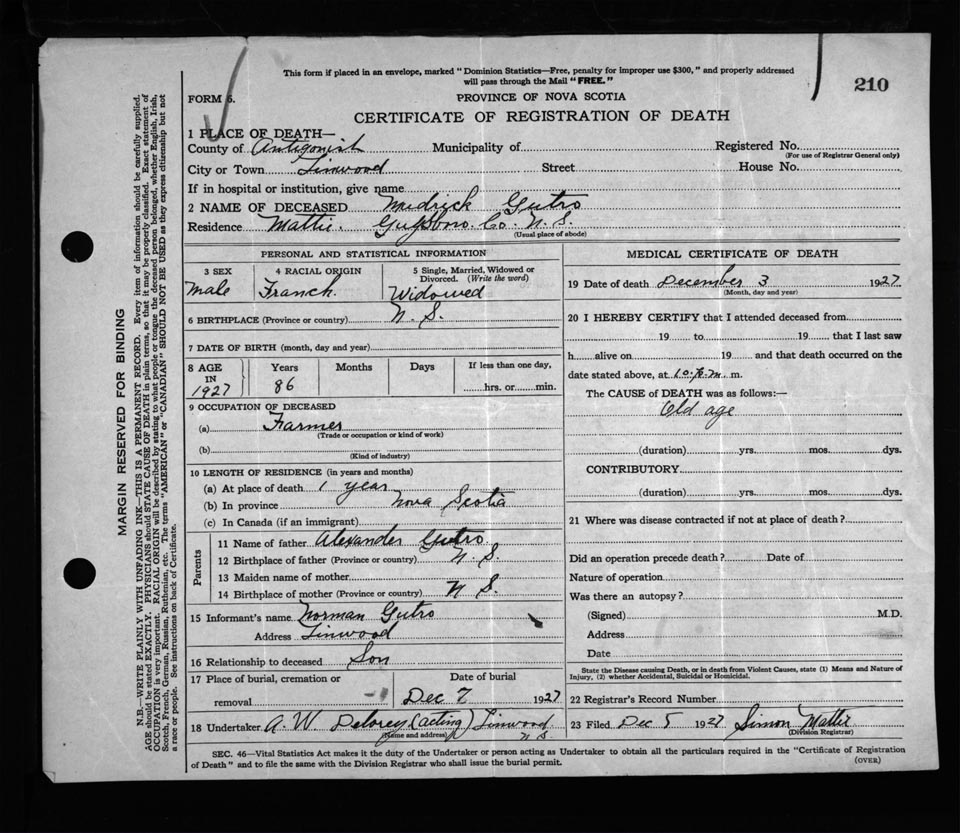 This form if placed in an envelope, marked "Dominion Statistics—Free, penalty for improper use $300," and properly addressed
will pass through the Mail "FREE."
210
FORM 6.
PROVINCE OF NOVA SCOTIA
CERTIFICATE OF REGISTRATION OF DEATH
1 PLACE OF DEATH—
County of Antigonish Municipality of Registered No.
(For use of Registrar General only)
City or Town Linwood Street House No.
If in hospital or institution, give name
2 NAME OF DECEASED Medrick Gutro
Residence Mattie. Guysboro. Co. N. S.
(Usual place of abode)
PERSONAL AND STATISTICAL INFORMATION
3 SEX 4 RACIAL ORIGIN 5 Single, Married, Widowed or
Divorced. (Write the word)
Male Franch. Widowed
6 BIRTHPLACE (Province or country) N. S.
7 DATE OF BIRTH (month, day and year)
8 AGE IN 1927 Years 86 Months Days If less than one day,
hrs. or min.
9 OCCUPATION OF DECEASED
(a) Farmer
(Trade or occupation or kind of work)
(b)
(Kind of industry)
10 LENGTH OF RESIDENCE (in years and months)
(a) At place of death 1 year
(b) In province Nova Scotia
(c) In Canada (if an immigrant)
Parents
11 Name of father Alexander Gutro.
12 Birthplace of father (Province or country) N. S.
13 Maiden name of mother
14 Birthplace of mother (Province or country) N S.
15 Informant's name Norman Gutro
Address Linwood
16 Relationship to deceased Son
17 Place of burial, cremation or Date of burial
removal Dec 7 1927
18 Undertaker A. W. Delorey (acting) Linwood
(Name and address) N S
MEDICAL CERTIFICATE OF DEATH
19 Date of death December 3 1927
(Month, day and year)
20 I HEREBY CERTIFY that I attended deceased from
19 to 19 that I last saw
h alive on 19 and that death occurred on the
date stated above, at 10. P. m. m.
The CAUSE of DEATH was as follows:—
Old age
(duration) yrs. mos. dys.
CONTRIBUTORY
(duration) yrs. mos. dys.
21 Where was disease contracted if not at place of death?
Did an operation precede death? Date of
Nature of operation
Was there an autopsy?
(Signed) M.D.
Address
Date
State the Disease causing Death, or in death from Violent Causes, state (1) Means and Nature of
Injury, (2) whether Accidental, Suicidal or Homicidal.
22 Registrar's Record Number
23 Filed Dec 5 1927 Simon Mattie
(Division Registrar)
SEC. 46—Vital Statistics Act makes it the duty of the Undertaker or person acting as Undertaker to obtain all the particulars required in the "Certificate of Registration
of Death" and to file the same with the Division Registrar who shall issue the burial permit.
(OVER)
MARGIN RESERVED FOR BINDING
N.B.—WRITE PLAINLY WITH UNFADING INK—THIS IS A PERMANENT RECORD. Every item of information should be carefully supplied.
AGE should be stated EXACTLY. PHYSICIANS should STATE CAUSE OF DEATH in plain terms, so that it may be properly classified. Exact statement of
OCCUPATION is very important. RACIAL ORIGIN will be described by stating to what people or tongue the deceased person belonged, whether English, Irish,
Scotch, French, German, Russian, Ruthenian, etc. The terms "AMERICAN" or "CANADIAN" SHOULD NOT BE USED as they express citizenship but not
a race or people. See instructions on back of Certificate.